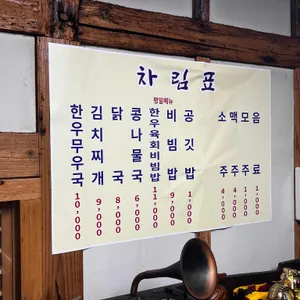 차림표
점일메뉴
한우무우국 10,000
김치찌개 9,000
닭국 8,000
콩나물국 6,000
한우육회비빔밥 11,000
비빔밥 9,000
공깃밥 1,000
소주 4,000
맥주 4,000
모주 1,000
음료 1,000